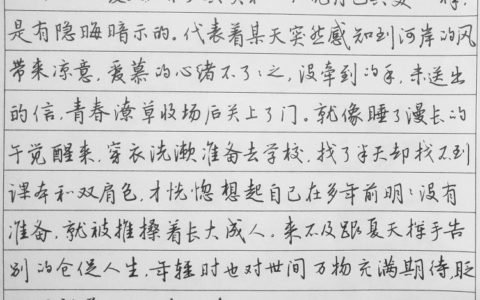 是有隐晦暗示的。代表着某天突然感知到河岸的风
带来凉意，爱慕的心绪不了了之，没牵到的手，未送出
的信，青春潦草收场后关上了门。就像睡了漫长的
午觉醒来，穿衣洗漱准备去学校，找了半天却找不到
课本和双肩包，才恍惚想起自己在多年前明明没有
准备，就被推搡着长大成人，来不及跟夏天挥手告
别的仓促人生，年轻时也对世间万物充满期待，眨